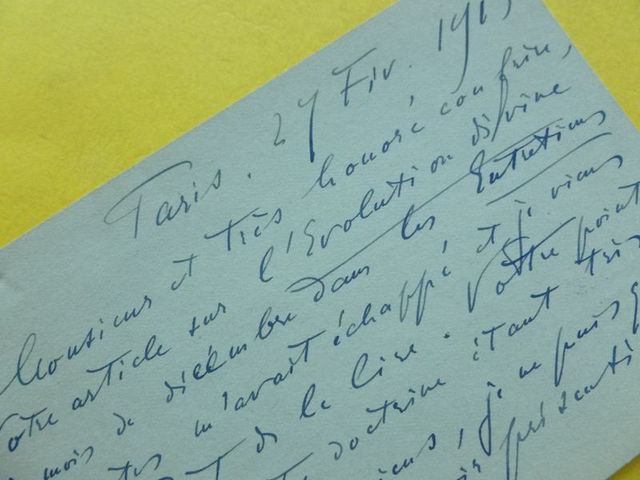 Paris. 27 Fév. 191
Monsieur et très honoré confrère,
Votre article sur l'Evolution divine
mois de décembre dans les Entretiens
m'avait échappé et je viens
de le lire. Votre point
doctrine étant très
je ne puis